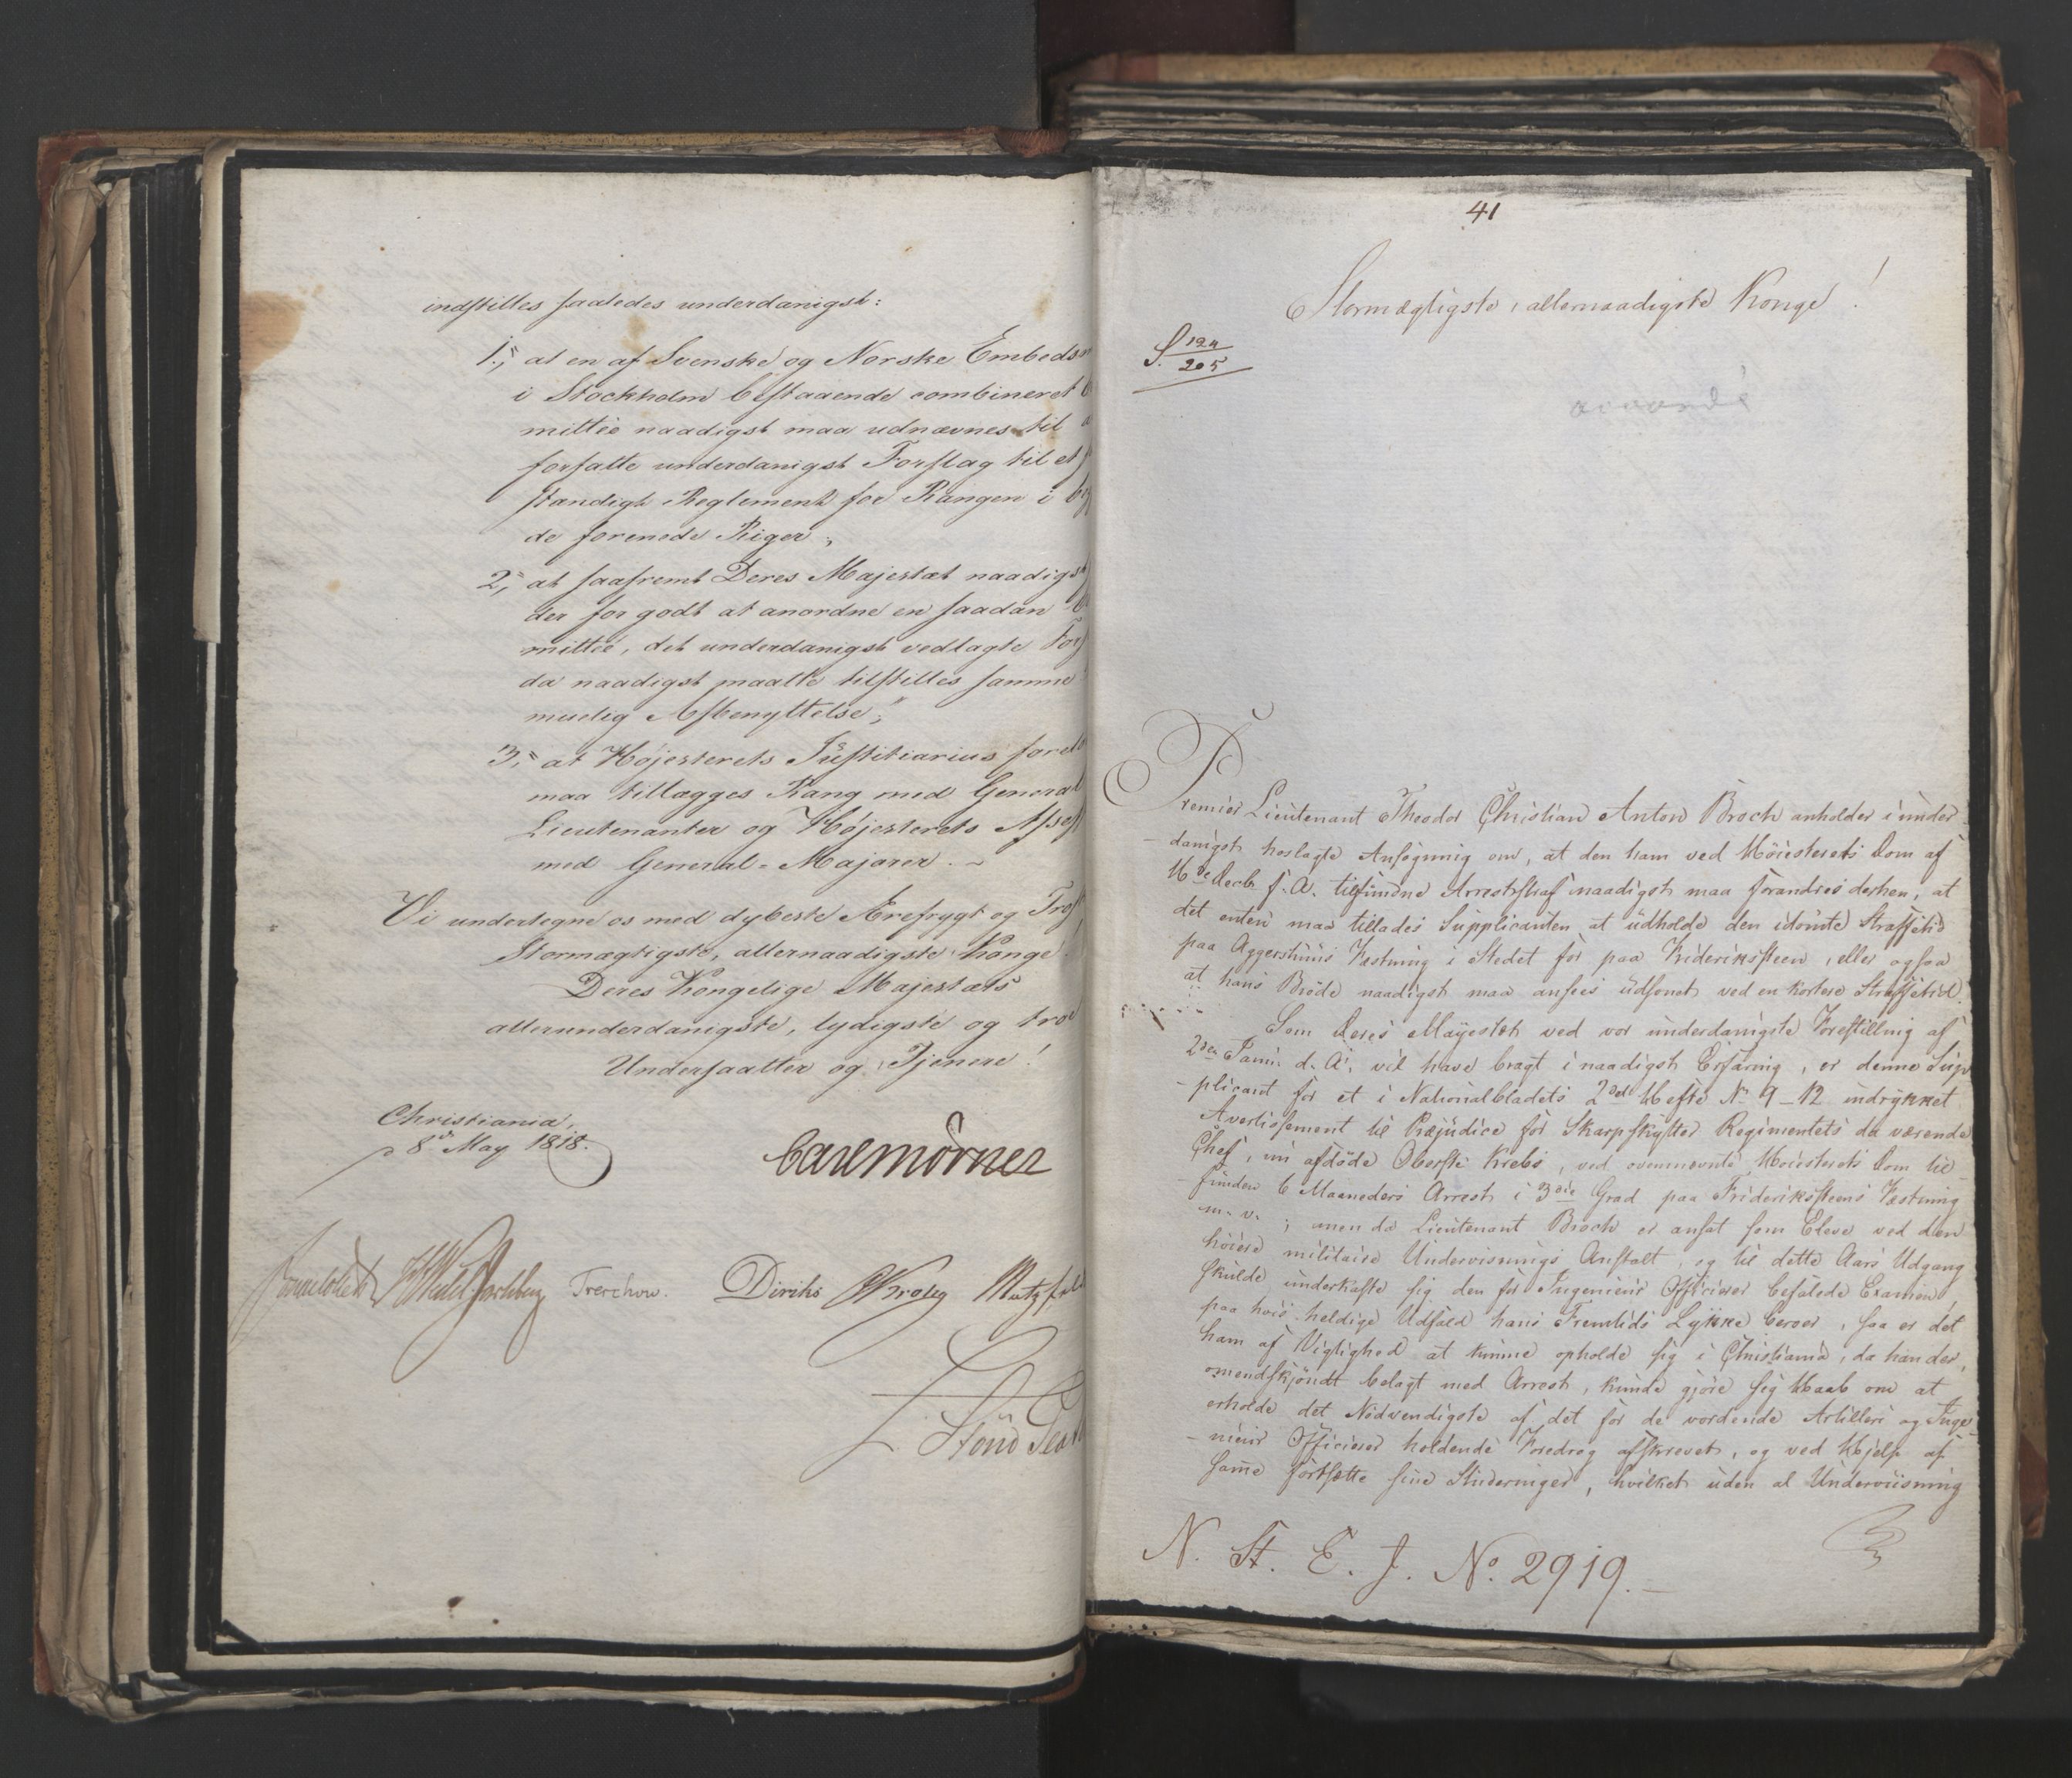 indstilles saaledes underdanigst:
1., at en af Svenske og Norske Embeds
i Stockholm bestaaende combineret
mittée naadigst maa udnævnes til
forfatte underdanigst Forslag til et
stændigt Reglement for Rangen i
de forenede Riger,
2, at saafremt Deres Majestæt naadigst
der for godt at anordne en saadan
mittée, det underdanigst vedlagte
da naadigst maatte tilstilles samme
muelig Afbenyttelse,
3, at Højesterets Justitiarius
maa tillægges Rang med General
Lieutenanter og Højesterets Assess
med General-Majorer.
Vi undertegne os med dybeste Ærefrygt og
Stormægtigste, allernaadigste Konge
Deres Kongelige Majestæts
allerunderdanigste, lydigste og troe
Undersaatter og Tjenere!
Christiania,
8de May 1818.
Carl Mörner
Sommerhielm HWedel Jarlsberg Treschow. Diriks Krohg Motzfeldt
41
Stormægtigste, allernaadigste Konge!
S. 124
205
Premier Lieutenant Theodor Christian Anton Broch anholder i under-
danigst hoslagte Ansøgning om, at den ham ved Höiesterets Dom af
Decbr f. A. tilfundne Arreststraf naadigst maa forandres derhen, at
det enten maa tillades Supplicanten at udholde den idömte Straffetid
paa Aggershuus Fæstning i Stedet for paa Frideriksteen, eller ogsaa
at hans Bröde naadigst maa ansees udsonet ved en kortere Straffetid.
Som Deres Mayestet ved vor underdanigste Forestilling af
2den Janu. d. A. vil have bragt i naadigst Erfaring, er denne Sup-
plicant for et i Nationalbladets 2det Hefte No 9-12 indrykket
Avertissement til Præjudice for Skarpskytter Regimentets da værende
Chef, nu afdöde Oberste Krebs, ved ovennævnte Höiesterets Dom til-
funden 6 Maaneders Arrest i 3die Grad paa Frideriksteens Fæstning
m. v.; men da Lieutenant Broch er ansat som Eleve ved den
höiere militaire Underviisnings Anstalt, og til dette Aars Udgang
skulde underkaste sig den for Ingenieur Officierer befalede Examen,
paa hvis heldige Udfald hans Fremtids Lykke beroer, saa er det
ham af Vigtighed at kunne opholde sig i Christiania, da han der,
omendskjöndt belagt med Arrest, kunde gjöre sig Haab om at
erholde det Nödvendigste af det for de vordende Artilleri og Inge-
nieur Officierer holdende Foredrag afskrevet, og ved Hjelp af
samme fortsætte sine Studeringer, hvilket uden al Underviisning
N. St. E. J. No. 2919.